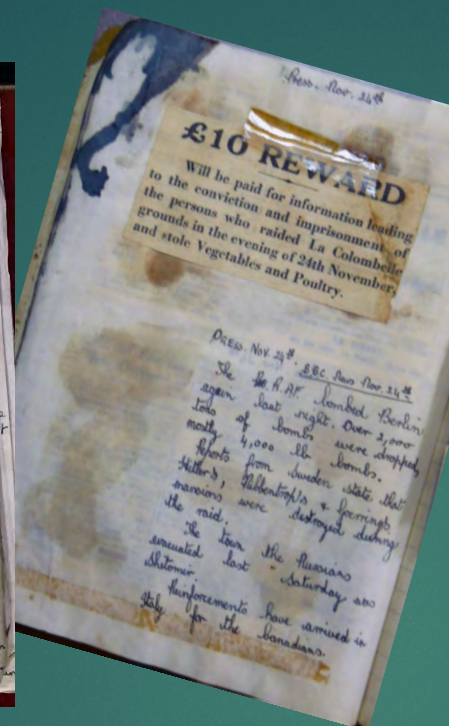 Press. Nov. 24th
£10 REWARD
Will be paid for information leading
to the conviction and imprisonment of
the persons who raided La Colombelle
grounds in the evening of 24th November,
and stole Vegetables and Poultry.
PRESS. Nov. 29th. BBC News Nov. 24th
The R.A.F. bombed Berlin
again last night. Over 2,000
tons of bombs were dropped,
mostly 4,000 lb bombs.
Reports from Sweden state that
Hitler's, Ribbentrop's & Goerrings
mansions were destroyed during
the raid.
The town the Russians
evacuated last Saturday was
Shitomir
Reinforcements have arrived in
Italy for the Canadians.